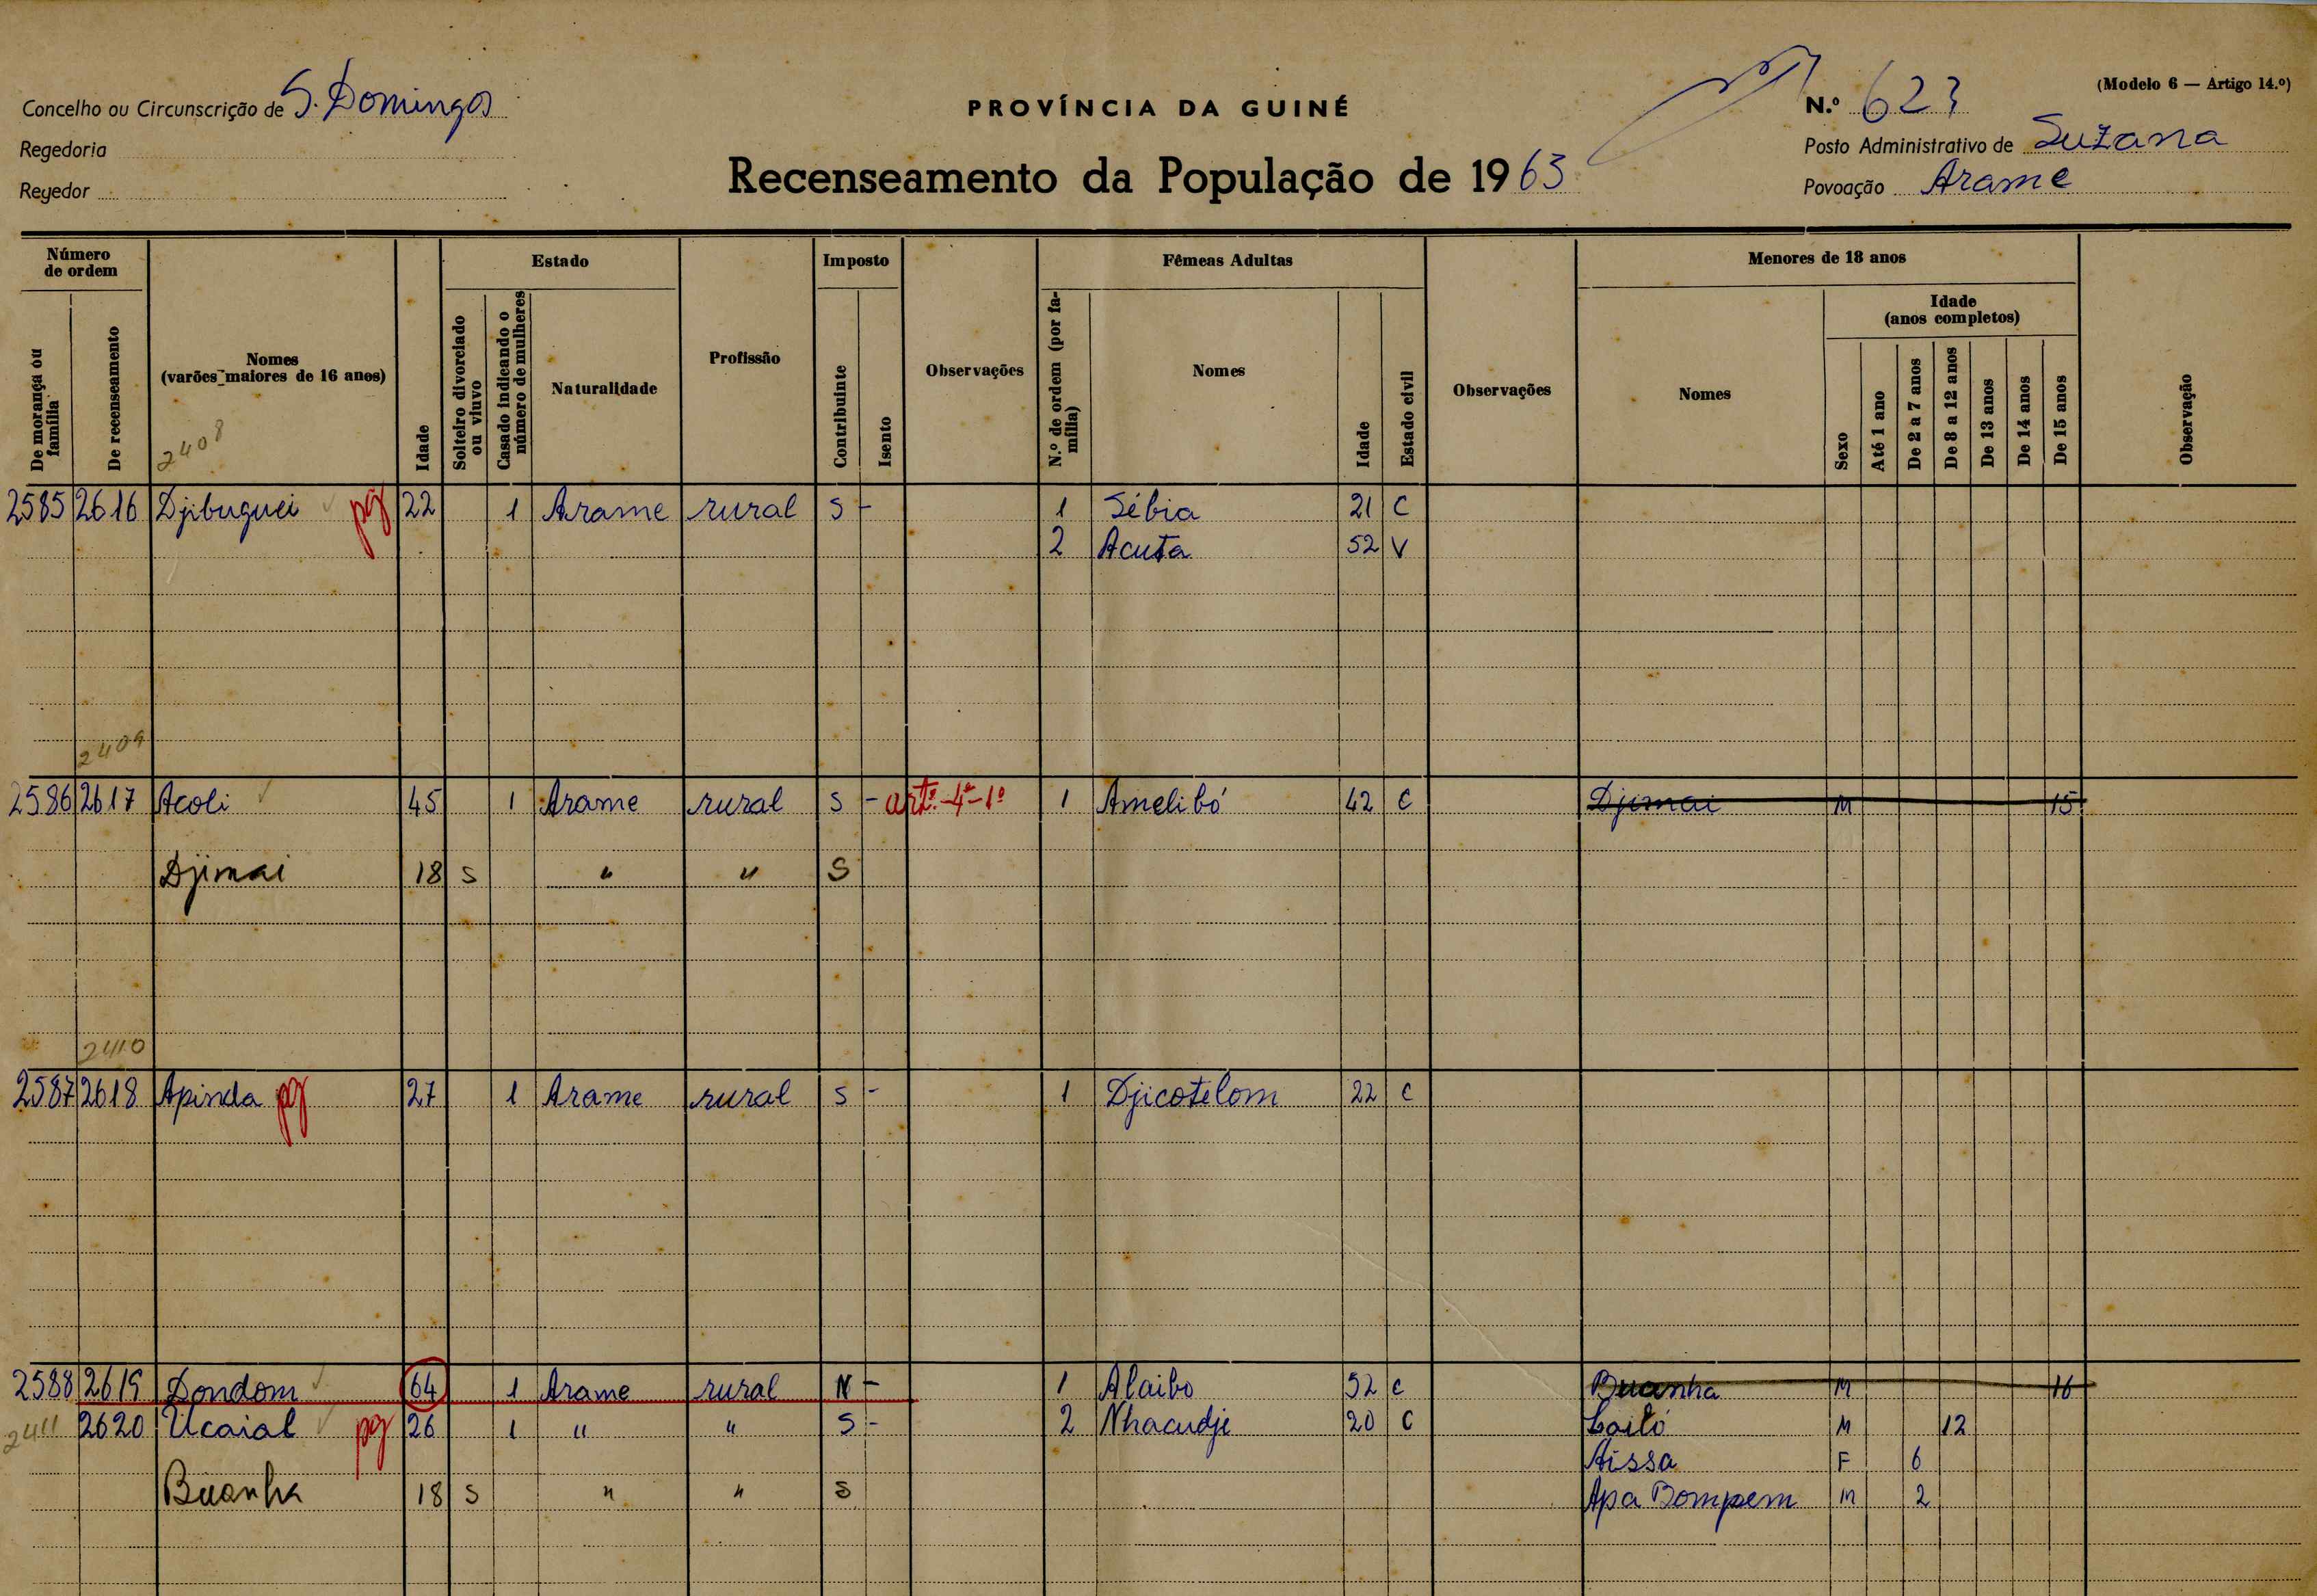 Concelho ou Circunscrição de S. Domingos
Regedoria
Regedor
PROVÍNCIA DA GUINÉ
Recenseamento da População de 1963
(Modelo 6 — Artigo 14.º)
N.º 623
Posto Administrativo de Suzana
Povoação Arame
Número de ordem
De morança ou família
De recenseamento
Nomes (varões maiores de 16 anos)
Idade
Estado
Solteiro divorciado ou viuvo
Casado indicando o número de mulheres
Naturalidade
Profissão
Imposto
Contribuinte
Isento
Observações
Fêmeas Adultas
N.º de ordem (por família)
Nomes
Idade
Estado civil
Observações
Menores de 18 anos
Nomes
Idade (anos completos)
Sexo
Até 1 ano
De 2 a 7 anos
De 8 a 12 anos
De 13 anos
De 14 anos
De 15 anos
Observação
2408
2585 2616 Djibuguei pg 22 1 Arame rural S - 1 Sébia 21 C
2 Acuta 52 V
2409
2586 2617 Acoli 45 1 Arame rural S - artº. 4º-1º 1 Amelibó 42 C Djimai M 15
Djimai 18 S " " S
2410
2587 2618 Apinda pg 27 1 Arame rural S - 1 Djicotelom 22 C
2588 2619 Dondom 64 1 Arame rural N - 1 Alaibo 52 C Buanha M 16
2411 2620 Ucaial pg 26 1 " " S - 2 Nhacudje 20 C Coiló M 12
Aissa F 6
Buanha 18 S " " S Apa Bompem M 2